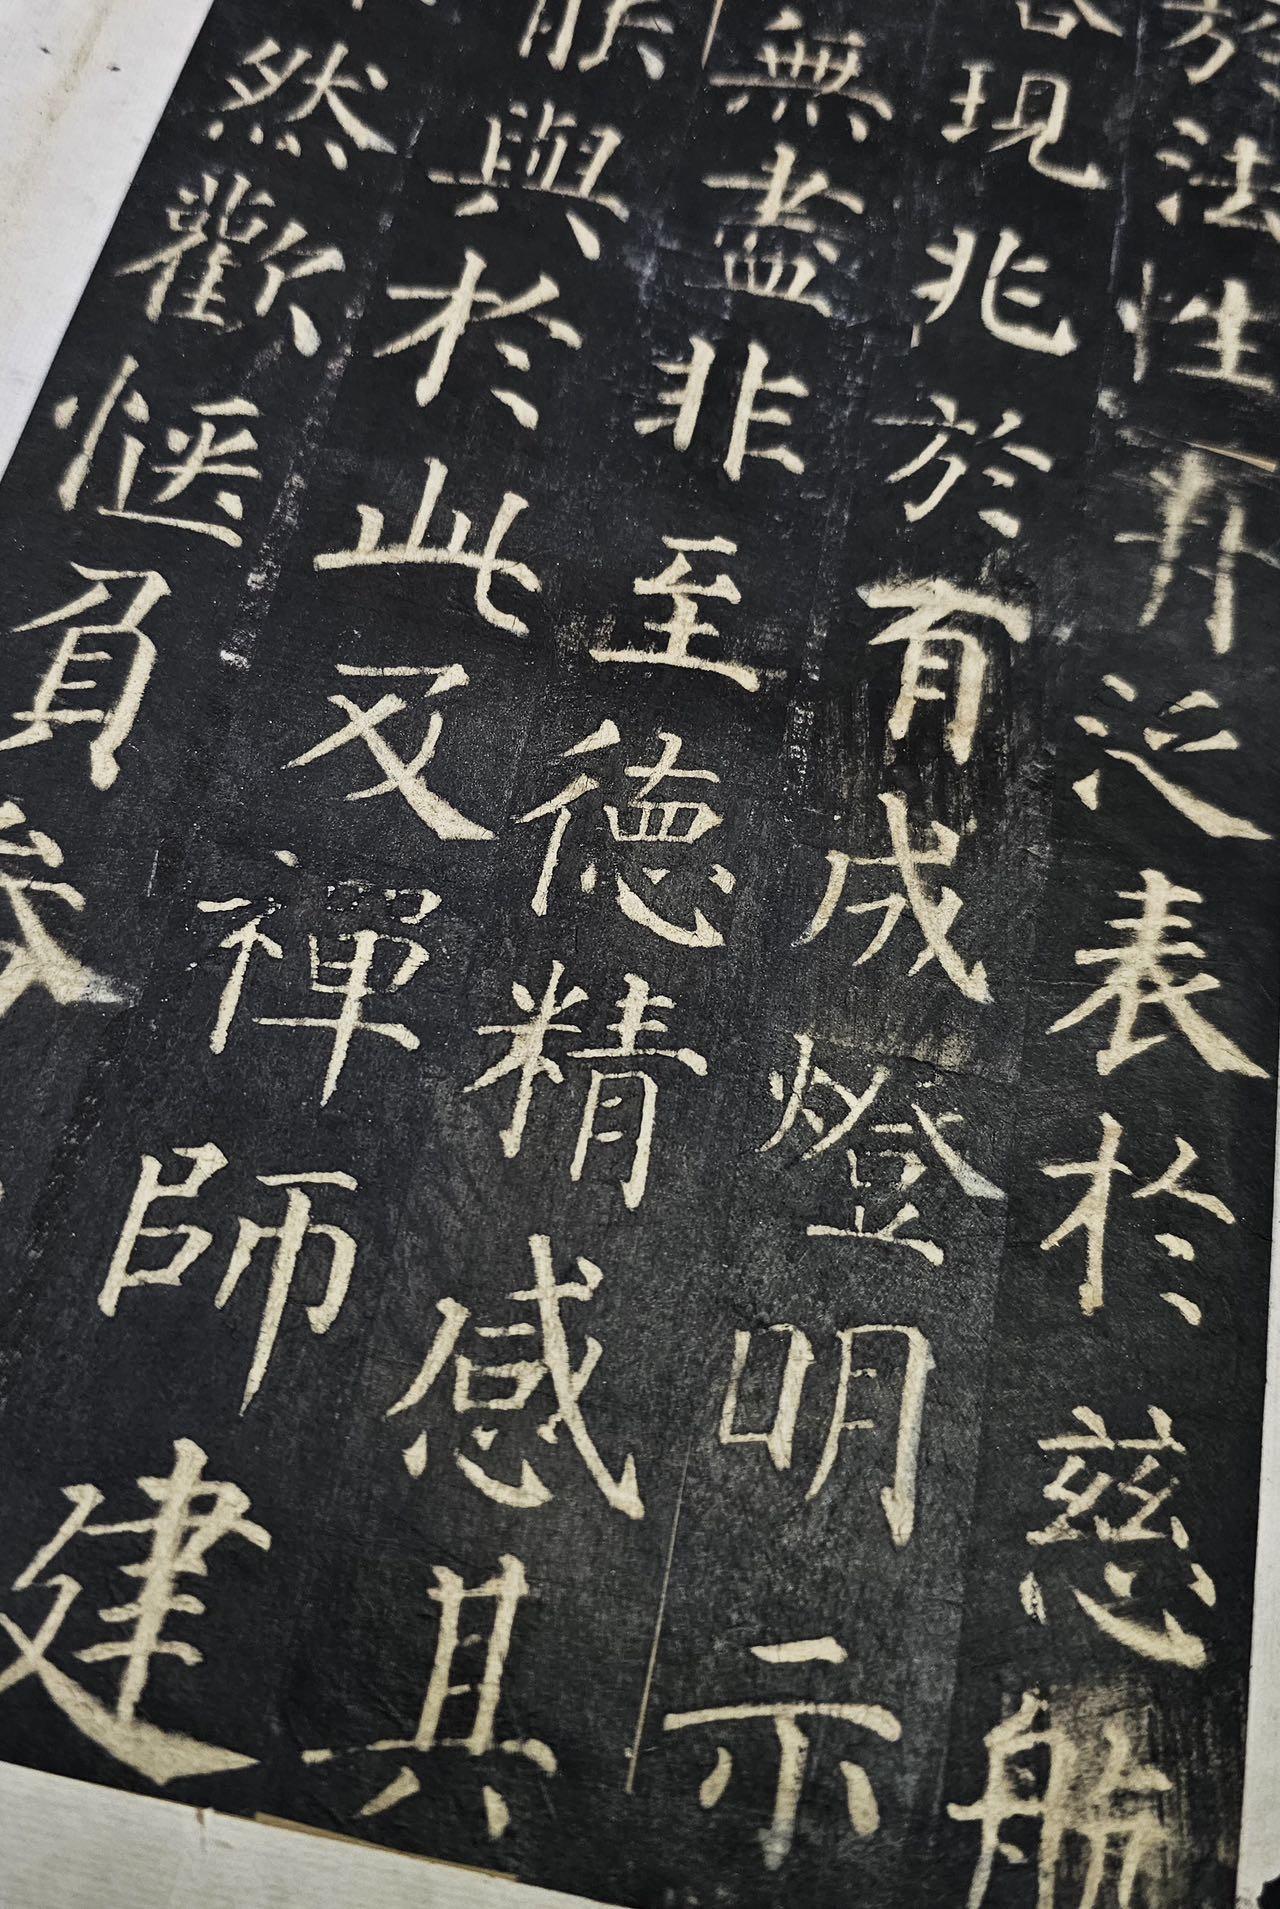 於法性舟泛表於慈航
現兆於有成燈明示
無盡非至德精感其
能與於此及禪師建
然歡愜負畚